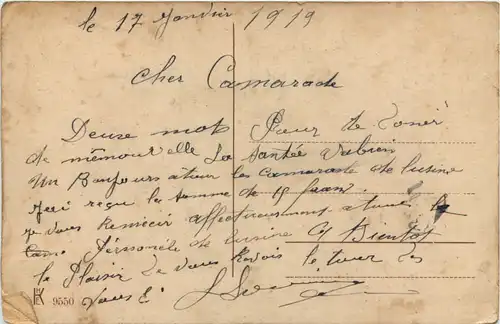 le 17 Janvier 1919
Cher Camarade
Deuse mot Pour te
de La Santée
un Bonjours a tour les camarade de lusine
jai reçu la somme de 15 franc.
je vous Remercir affectueusement a tous
Personele de lusine A Bientot
le Plaisir de vous Revois le tour
vous
9550